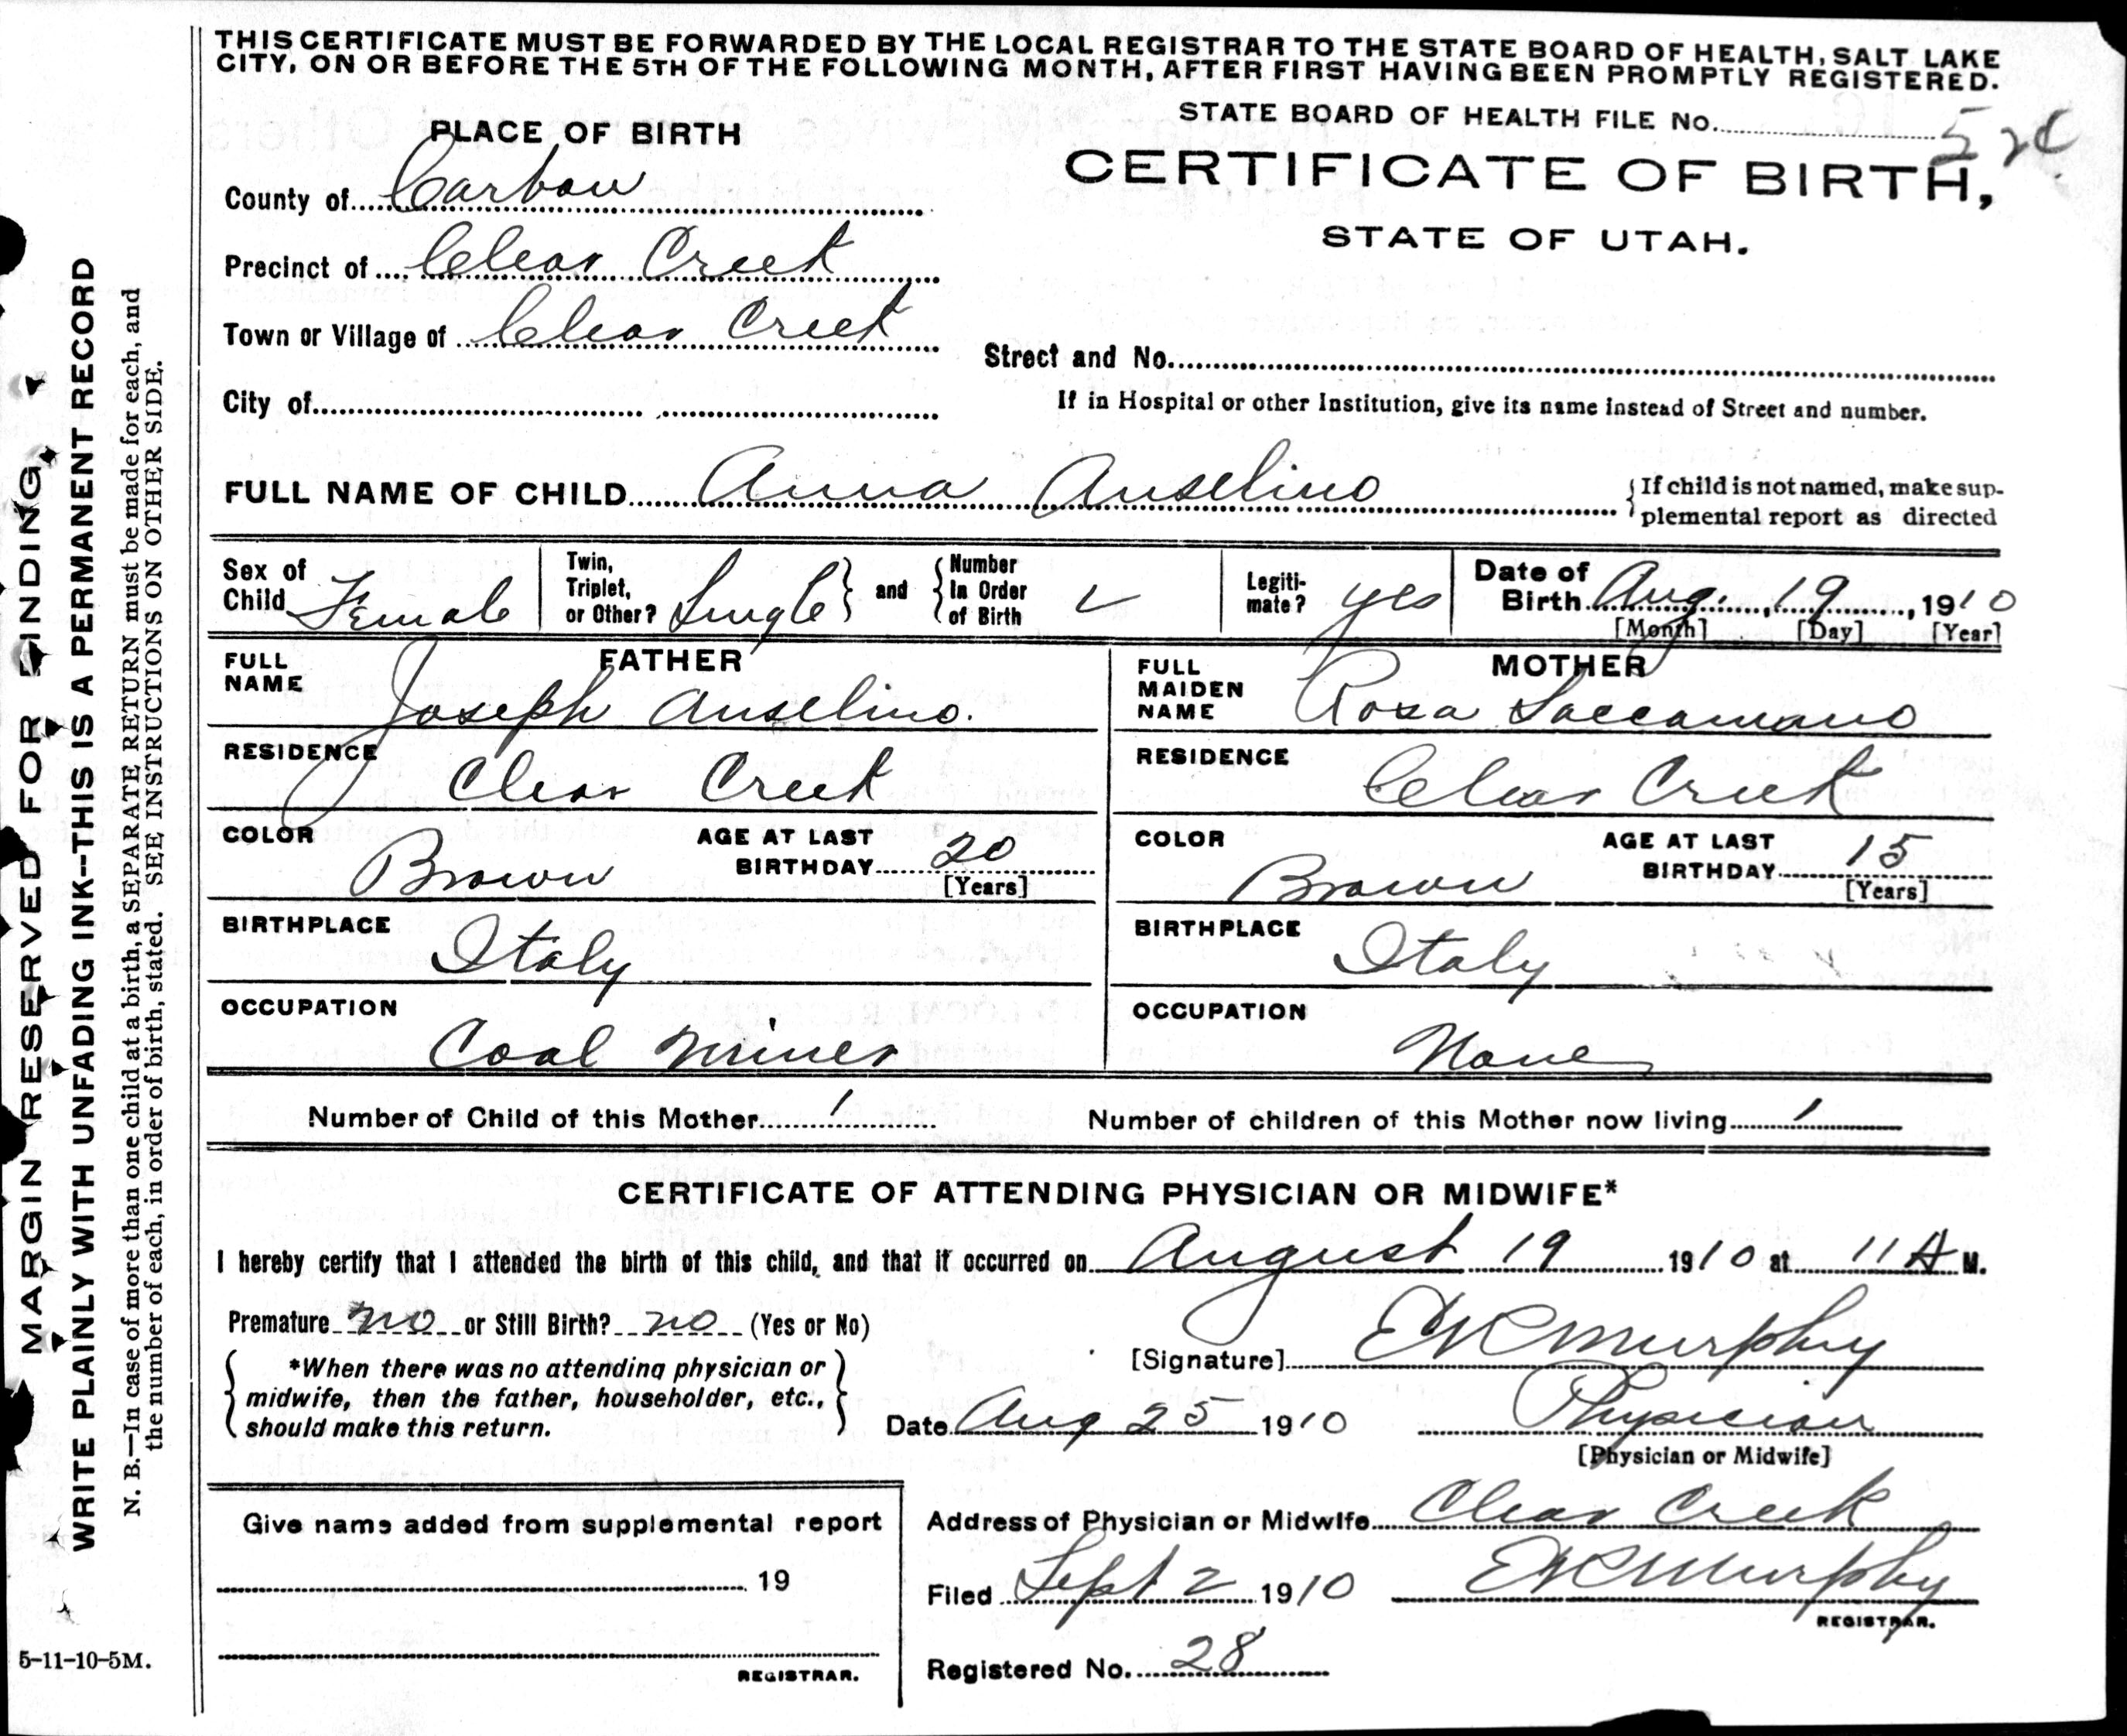 THIS CERTIFICATE MUST BE FORWARDED BY THE LOCAL REGISTRAR TO THE STATE BOARD OF HEALTH, SALT LAKE
CITY, ON OR BEFORE THE 5TH OF THE FOLLOWING MONTH, AFTER FIRST HAVING BEEN PROMPTLY REGISTERED.
STATE BOARD OF HEALTH FILE No.
PLACE OF BIRTH
CERTIFICATE OF BIRTH,
STATE OF UTAH.
County of Carbon
Precinct of Clear Creek
Town or Village of Clear Creek
Street and No.
City of
If in Hospital or other Institution, give its name instead of Street and number.
FULL NAME OF CHILD Anna Anselino
If child is not named, make sup-
plemental report as directed
Sex of Child Female
Twin, Triplet, or Other? Single and Number In Order of Birth
Legiti-mate? yes
Date of Birth Aug. 19, 1910
[Month] [Day] [Year]
FATHER
FULL NAME Joseph Anselino.
RESIDENCE Clear Creek
COLOR Brown AGE AT LAST BIRTHDAY 20
[Years]
BIRTHPLACE Italy
OCCUPATION Coal Miner
MOTHER
FULL MAIDEN NAME Rosa Saccamano
RESIDENCE Clear Creek
COLOR Brown AGE AT LAST BIRTHDAY 15
[Years]
BIRTHPLACE Italy
OCCUPATION None
Number of Child of this Mother 1 Number of children of this Mother now living 1
CERTIFICATE OF ATTENDING PHYSICIAN OR MIDWIFE*
I hereby certify that I attended the birth of this child, and that it occurred on August 19 1910 at 11 A M.
Premature no or Still Birth? no (Yes or No)
*When there was no attending physician or
midwife, then the father, householder, etc.,
should make this return.
[Signature] Murphy
Date Aug 25 1910 Physician
[Physician or Midwife]
Give name added from supplemental report
19
REGISTRAR.
Address of Physician or Midwife Clear Creek
Filed Sept 2 1910 Murphy
REGISTRAR.
Registered No. 28
MARGIN RESERVED FOR BINDING.
WRITE PLAINLY WITH UNFADING INK--THIS IS A PERMANENT RECORD
N. B.—In case of more than one child at a birth, a SEPARATE RETURN must be made for each, and
the number of each, in order of birth, stated. SEE INSTRUCTIONS ON OTHER SIDE.
5-11-10-5M.